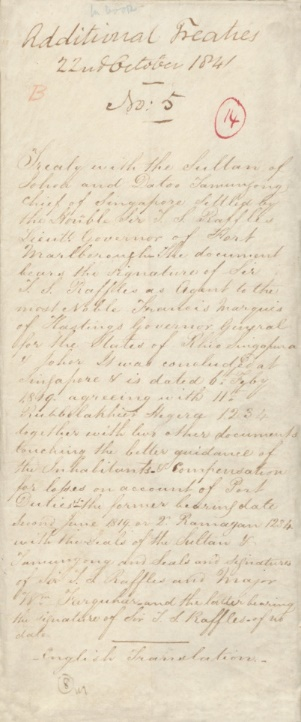 Additional Treaties
22nd October 1841
B
No: 5
14
Treaty with the Sultan of
Johok and Datoo Tamungong
Chief of Singapore settled by
the Honble Sir T. S. Raffles
Lieutt Governor of Fort
Marlborough. The document
bears the signature of Sir
T. S. Raffles as Agent to the
most Noble Francis Marquis
of Hastings Governor General
for the States of Rhio Singapura
& Johor It was concluded at
Singapore & is dated 6 Feby
1819 agreeing with 11th
Hegera 1234
together with two other documents
touching the better guidance of
the Inhabitants & Compensation
for losses on account of Port
Duties the former bearing date
June 1819 or 2d Ramayan 1234
with the seals of the Sultan &
Tamungong and seals and signatures
of Sir T. S. Raffles and Major
Wm Farquhar and the latter bearing
the signature of Sir T. S. Raffles of no
date
English Translation
8